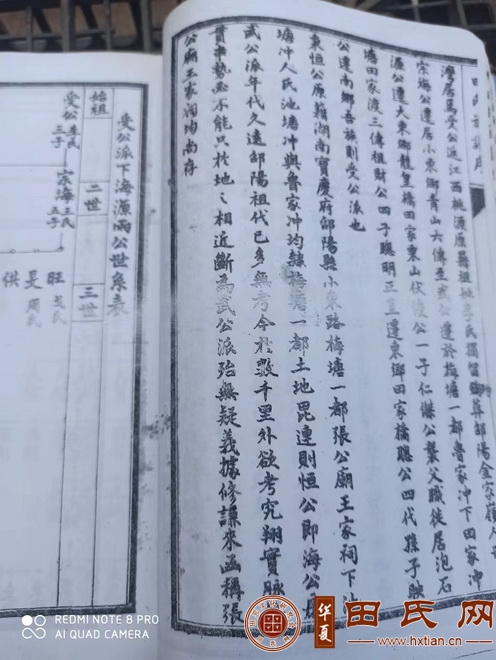 灣居焉受公返江西桃源原籍祖址李氏獨留葬邵陽金家嶺
宗海公遷居小東鄉青山六傳至武公遷於梅塘一都魯家冲下田家冲
源公遷大東鄉龍皇橋田家東山伏後公一子仁傑公業父職徙居泡石
塘田家渡三傳祖財公四子聰明正直遷東鄉田家橋聰公四代孫子
公遷南鄉吾族則受公派也
東恒公原籍湖南寶慶府邵陽縣小東路梅塘一都張公廟王家祠下池
塘冲人氏池塘冲與魯家冲均隸梅塘一都土地毘連則恒公即海公
武公派年代久遠邵陽祖代已多無考今於數千里外欲考究翔實脉
勢必不能只於地之相近斷為武公派殆無疑義據修謙來函稱張
公廟王家祠均尚存
受公派下海源兩公世系表
始祖 二世 三世
受公 李氏 三子
宗海 王氏 五子
旺 戈氏
旻 周氏
供
REDMI NOTE 8 PRO
AI QUAD CAMERA
华夏 田氏网
www.hxtian.cn